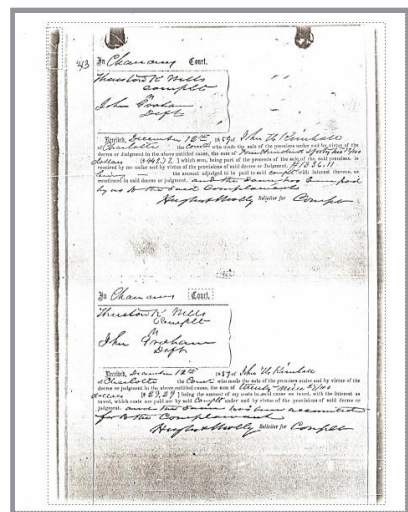 43 In Chancery Court.
Thurston K. Wells
Complt
vs
John Graham
Deft
Received, December 12th 1859 of John W. Kimball
of Charlotte the Court who made the sale of the premises under and by virtue of the
decree or Judgment in the above entitled cause, the sum of Four Hundred
dollars [$442.72] which sum, being part of the proceeds of the sale of the said premises, is
received by me under and by virtue of the provisions of said decree or Judgment, $1336.11
being the amount adjudged to be paid to said Complt with interest thereon, as
mentioned in said decree or judgment. and the same has been paid
by us to the said Complainant
Hughes & Woolly Solicitor for Complt
In Chancery Court.
Thurston K. Wells
Complt
vs
John Graham
Deft
Received, December 12th 1859 of John W. Kimball
of Charlotte the Court who made the sale of the premises under and by virtue of the
decree or judgment in the above entitled cause, the sum of twenty nine 29/100
dollars [$29.29] being the amount of my costs in said cause as taxed, with the interest as
taxed, which costs are paid me by said Complt under and by virtue of the provisions of said decree or
judgment. and the same has been accounted
for to the Complainant
Hughes & Woolly Solicitor for Complt